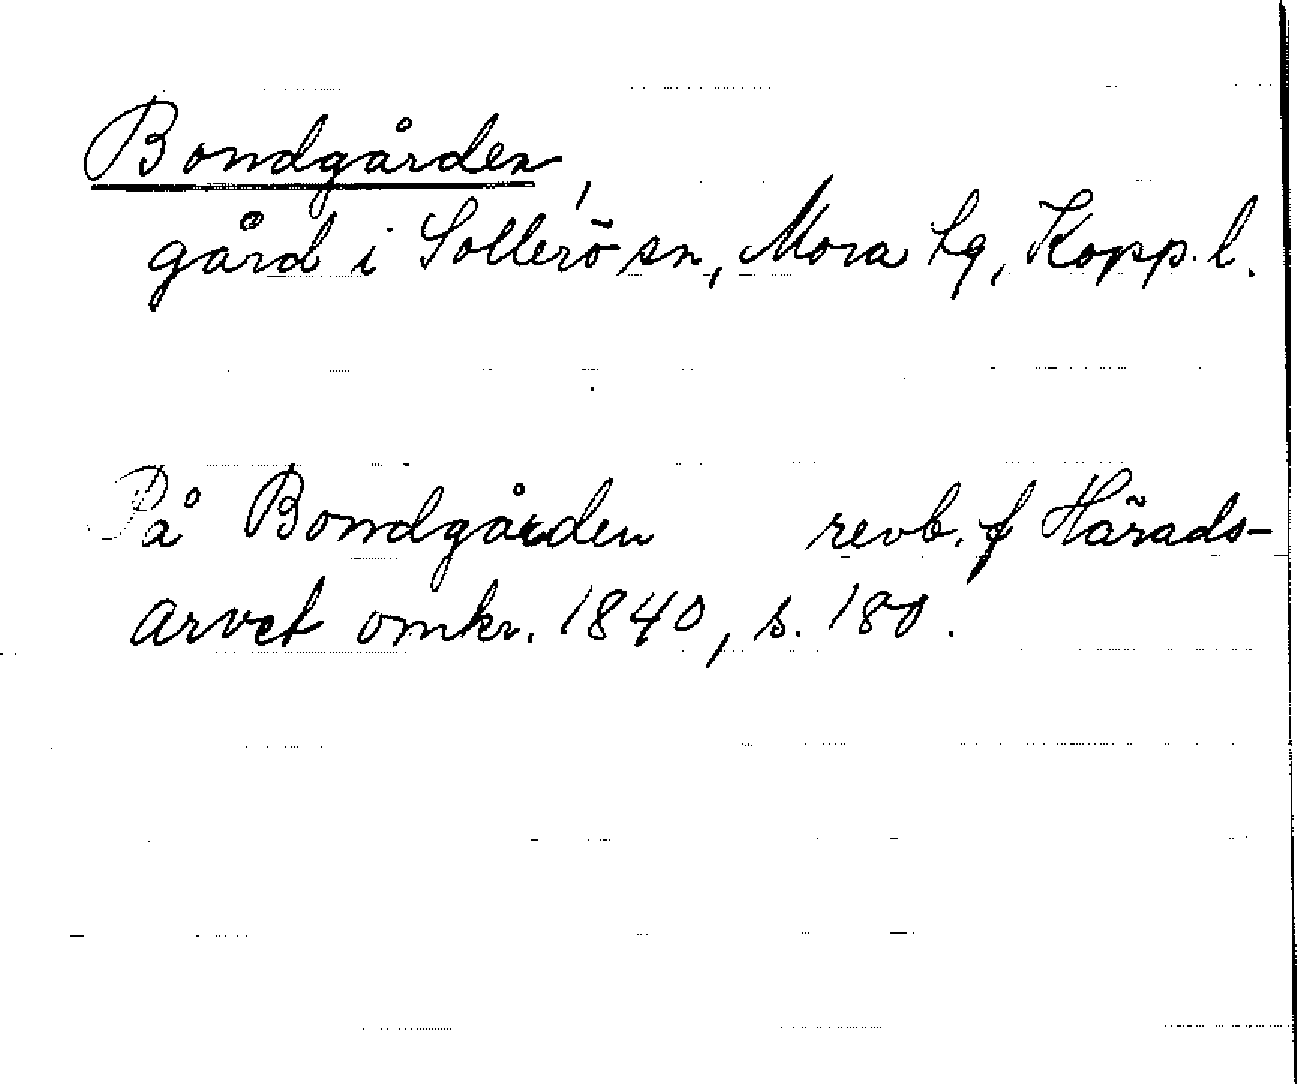 Bondgården,
gård i Sollerö sn, Mora tg, Kopp. l.
På Bondgården revb. f Härads-
arvet omkr. 1840, s. 180.